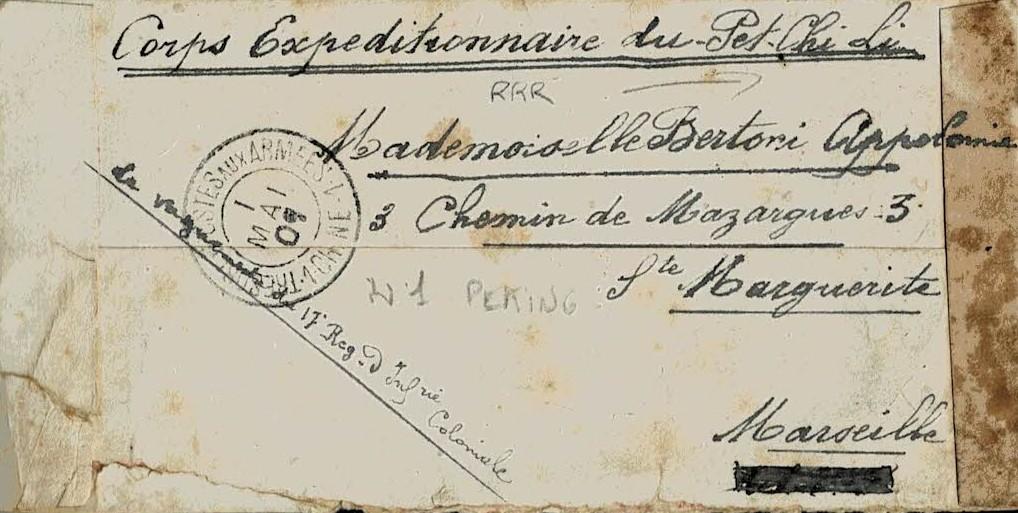 Corps Expeditionnaire du Pet-Chi Li
RRR
Mademoiselle Bertoni Appolonie
3 Chemin de Mazargues 3
Ste Marguerite
N°1 PEKING
Marseille
POSTES AUX ARMEES
1
MAI
01
Le vaguemestre
17e Reg. D'Infrie Coloniale